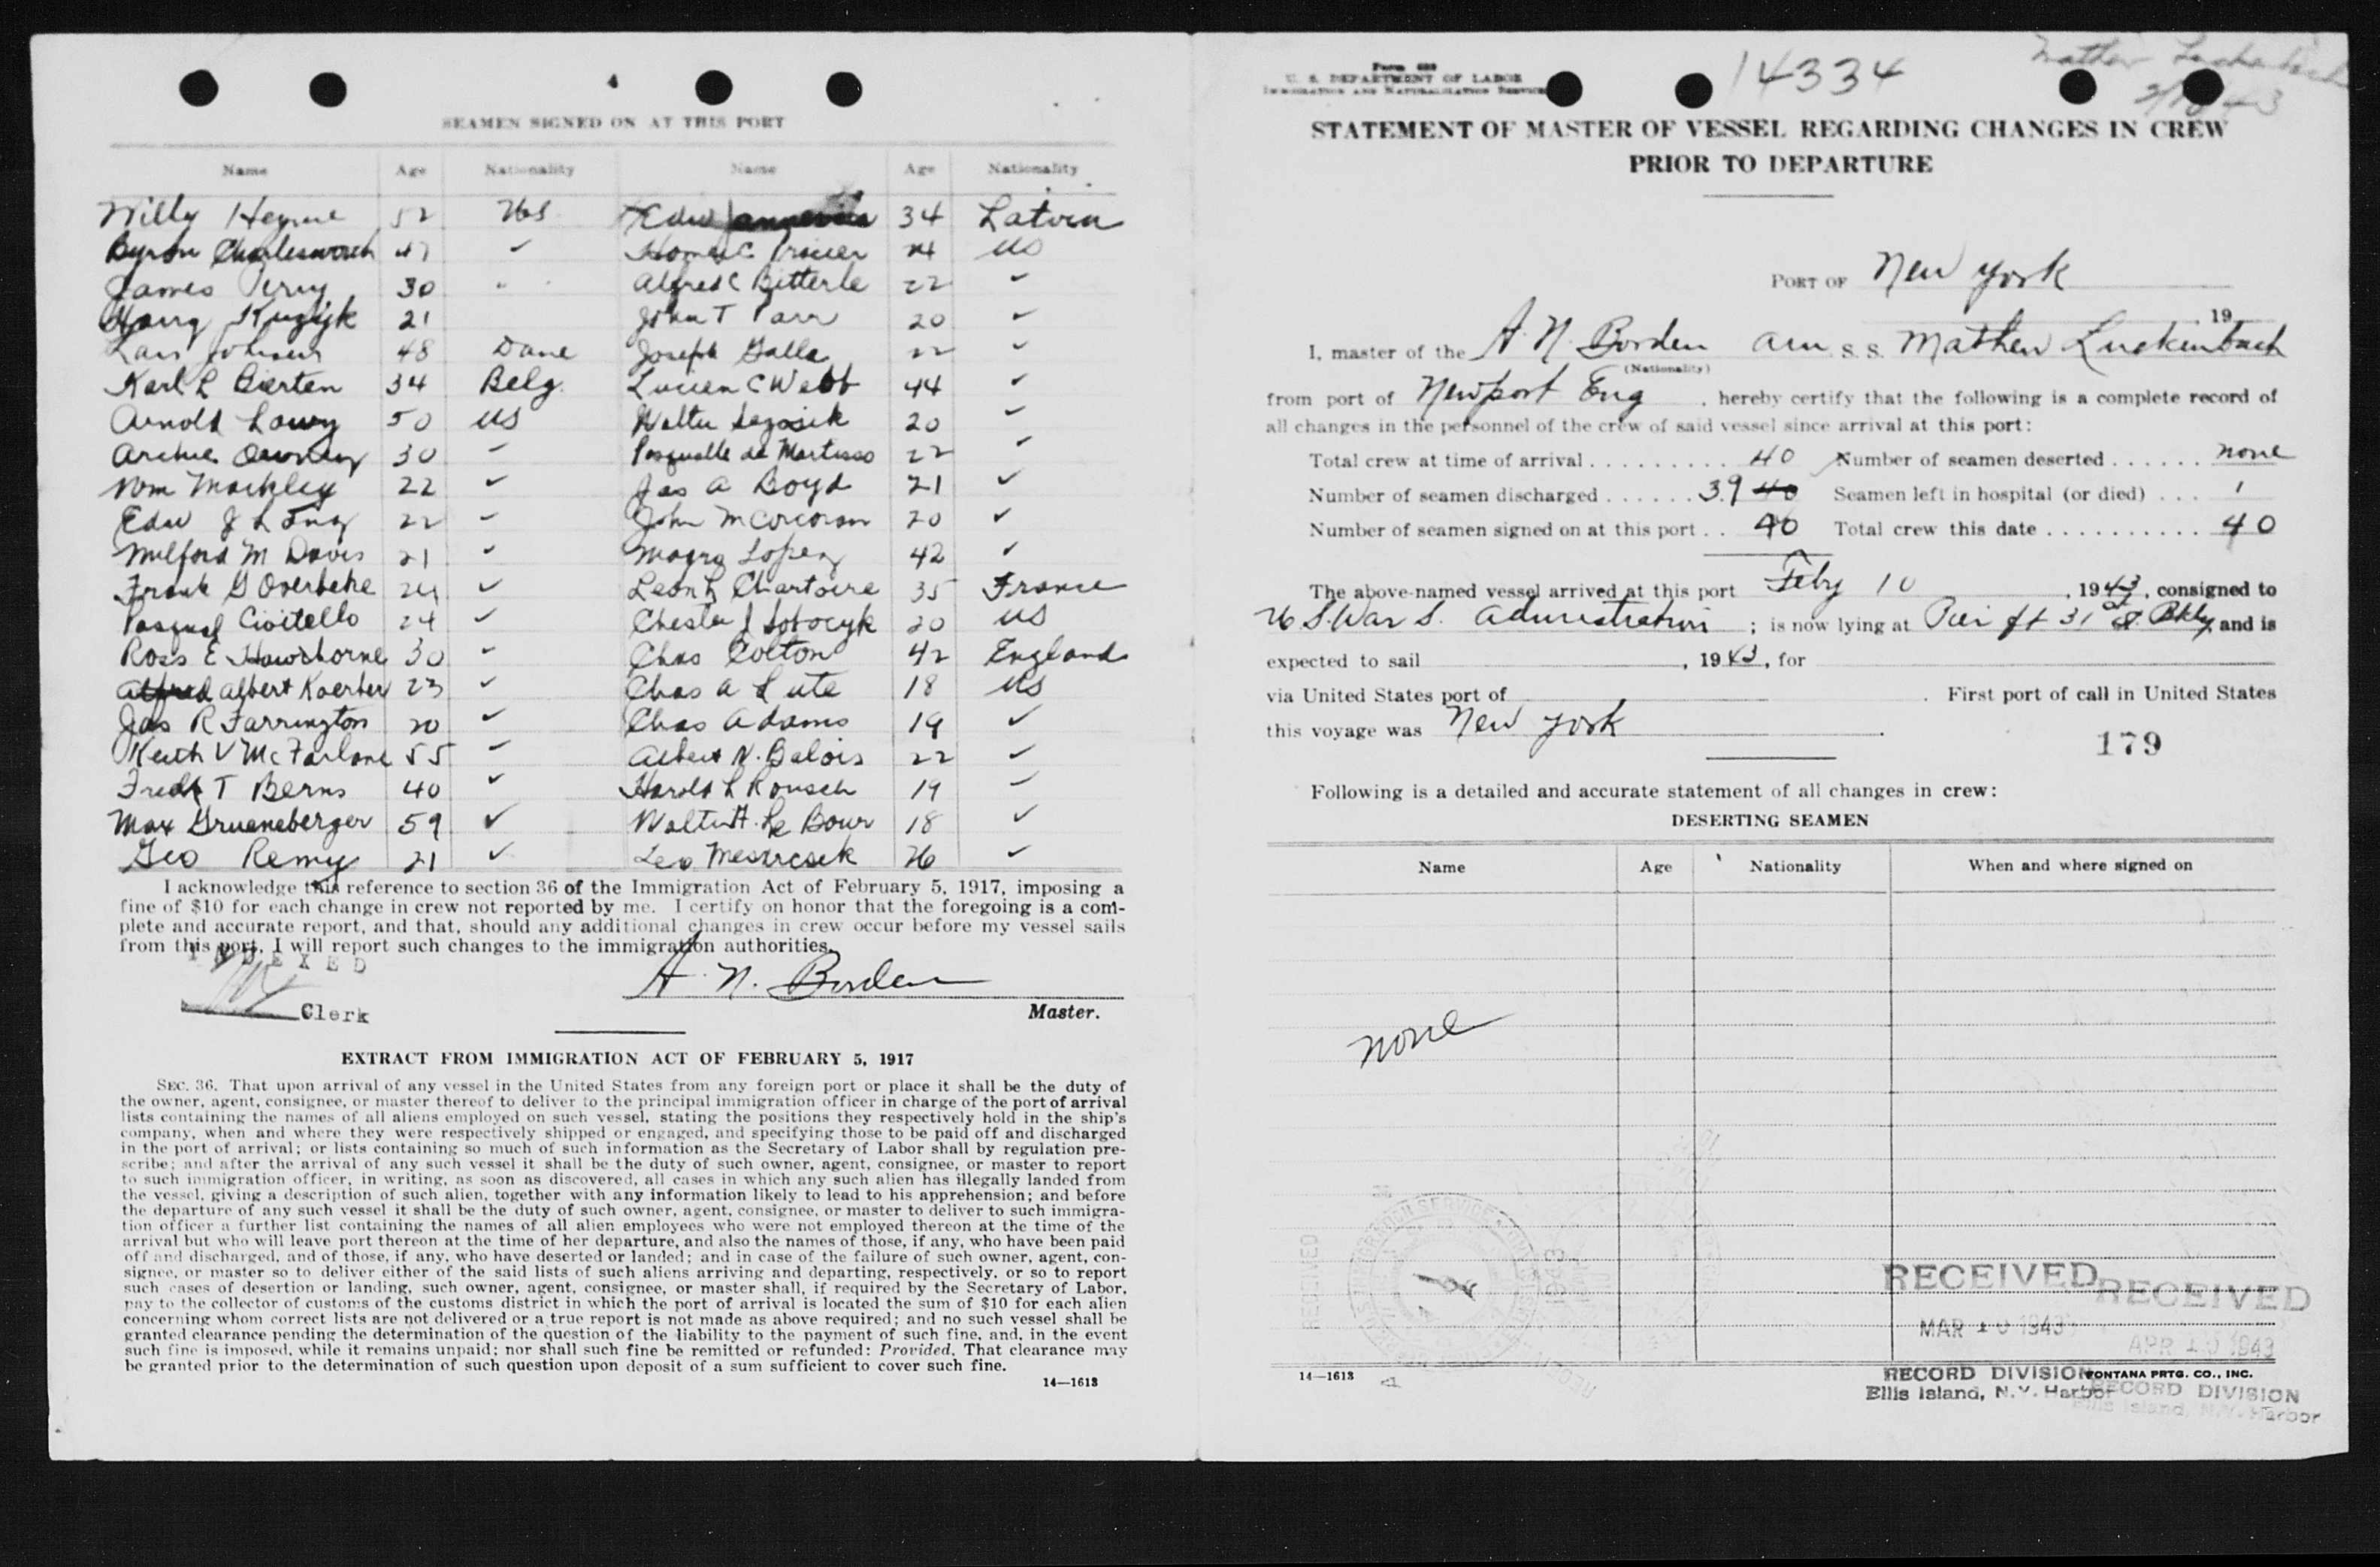 4
SEAMEN SIGNED ON AT THIS PORT
Name Age Nationality Name Age Nationality
Willy 52 US Edw 34 Latvia
Byron Charlesworth 47 ✓ Homer C 24 US
James Perry 30 " Alfred C Bitterle 22 ✓
Harry 21 John T Parr 20 ✓
Lars Johnsen 48 Dane Joseph Galla 22 ✓
Karl L Bierten 34 Belg. Lucien C Webb 44 ✓
Arnold Lowy 50 US Walter 20 ✓
Archie 30 ✓ Pasqualle de 22 ✓
Wm Mackley 22 ✓ Jas A Boyd 21 ✓
Edw J Long 22 ✓ John M Corcoran 20 ✓
Milford M Davis 21 ✓ Lopez 42 ✓
Frank G Overbeke 24 ✓ Leon L Chartoire 35 France
Pasqual Civitello 24 ✓ Chester J Sobocyk 20 US
Ross E Hawthorne 30 ✓ Chas Colton 42 England
Alfred Albert Koerber 23 ✓ Chas A Lute 18 US
Jas R Farrington 20 ✓ Chas Adams 19 ✓
Keith V McFarlane 55 ✓ Albert N. Balois 22 ✓
Fredk T Berns 40 ✓ Harold L Rousch 19 ✓
Max Grueneberger 59 ✓ Walter H. Le Bour 18 ✓
Geo Remy 21 ✓ Leo 26 ✓
I acknowledge this reference to section 36 of the Immigration Act of February 5, 1917, imposing a
fine of $10 for each change in crew not reported by me. I certify on honor that the foregoing is a com-
plete and accurate report, and that, should any additional changes in crew occur before my vessel sails
from this port, I will report such changes to the immigration authorities.
INDEXED
A. N. Borden
Clerk
Master.
EXTRACT FROM IMMIGRATION ACT OF FEBRUARY 5, 1917
SEC. 36. That upon arrival of any vessel in the United States from any foreign port or place it shall be the duty of
the owner, agent, consignee, or master thereof to deliver to the principal immigration officer in charge of the port of arrival
lists containing the names of all aliens employed on such vessel, stating the positions they respectively hold in the ship's
company, when and where they were respectively shipped or engaged, and specifying those to be paid off and discharged
in the port of arrival; or lists containing so much of such information as the Secretary of Labor shall by regulation pre-
scribe; and after the arrival of any such vessel it shall be the duty of such owner, agent, consignee, or master to report
to such immigration officer, in writing, as soon as discovered, all cases in which any such alien has illegally landed from
the vessel, giving a description of such alien, together with any information likely to lead to his apprehension; and before
the departure of any such vessel it shall be the duty of such owner, agent, consignee, or master to deliver to such immigra-
tion officer a further list containing the names of all alien employees who were not employed thereon at the time of the
arrival but who will leave port thereon at the time of her departure, and also the names of those, if any, who have been paid
off and discharged, and of those, if any, who have deserted or landed; and in case of the failure of such owner, agent, con-
signee, or master so to deliver either of the said lists of such aliens arriving and departing, respectively, or so to report
such cases of desertion or landing, such owner, agent, consignee, or master shall, if required by the Secretary of Labor,
pay to the collector of customs of the customs district in which the port of arrival is located the sum of $10 for each alien
concerning whom correct lists are not delivered or a true report is not made as above required; and no such vessel shall be
granted clearance pending the determination of the question of the liability to the payment of such fine, and, in the event
such fine is imposed, while it remains unpaid; nor shall such fine be remitted or refunded: Provided, That clearance may
be granted prior to the determination of such question upon deposit of a sum sufficient to cover such fine.
14—1613
Form 689
U. S. DEPARTMENT OF LABOR
IMMIGRATION AND NATURALIZATION SERVICE
14334
STATEMENT OF MASTER OF VESSEL REGARDING CHANGES IN CREW
PRIOR TO DEPARTURE
PORT OF New York
, 19
I, master of the A. N. Borden Am S. S. Mathew Luckenbach
(Nationality)
from port of Newport Eng , hereby certify that the following is a complete record of
all changes in the personnel of the crew of said vessel since arrival at this port:
Total crew at time of arrival 40 Number of seamen deserted none
Number of seamen discharged 39 40 Seamen left in hospital (or died) 1
Number of seamen signed on at this port 40 Total crew this date 40
The above-named vessel arrived at this port Feby 10 , 1943, consigned to
U S. War S. Administration ; is now lying at Pier ft 31 St Bkly and is
expected to sail , 1943, for
via United States port of . First port of call in United States
this voyage was New York .
179
Following is a detailed and accurate statement of all changes in crew:
DESERTING SEAMEN
Name Age Nationality When and where signed on
none
RECEIVED RECEIVED
MAR 10 1943
APR 10 1943
14—1613
RECORD DIVISION FONTANA PRTG. CO., INC.
Ellis Island, N.Y. Harbor RECORD DIVISION
Ellis Island, N.Y. Harbor